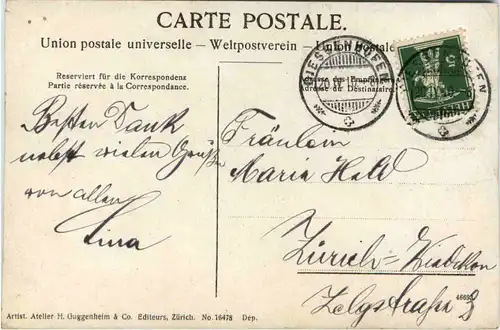 CARTE POSTALE.
Union postale universelle – Weltpostverein – Union Postale
Reserviert für die Korrespondenz
Partie réservée à la Correspondance.
Adresse des Empfängers
Adresse du Destinataire
DIESSENHOFEN
5
Besten Dank
nebst vielen Grüßen
von allen
Lina
Fräulein
Maria Held
Zürich-Wiedikon
Zelgstraße 8
Artist. Atelier H. Guggenheim & Co. Editeurs, Zürich. No. 16478 Dép.